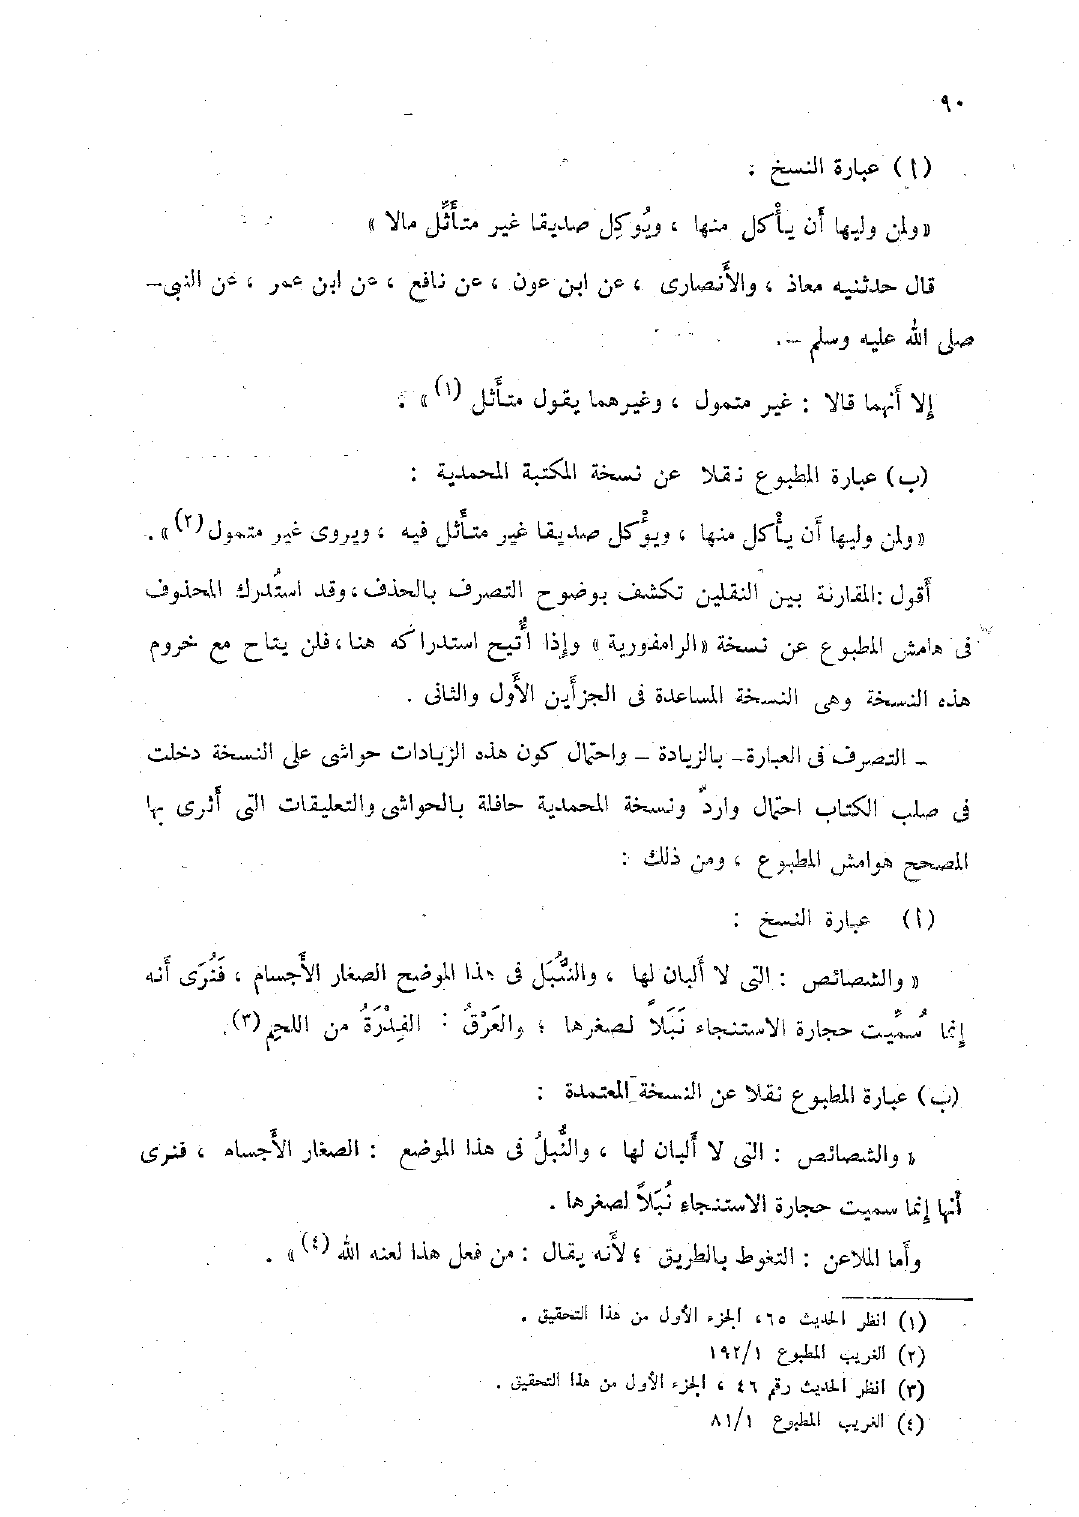 ٩٠
(أ) عبارة النسخ :
«ولمن وليها أن يأْكل منها ، ويُوكِل صديقا غير متأَثِّل مالا »
قال حدثنيه معاذ ، والأَنصارى ، عن ابن عون ، عن نافع ، عن ابن عمر ، عن النبى ــ
صلى الله عليه وسلم ــ.
إلا أَنهما قالا : غير متمول ، وغيرهما يقول متأَثل (١)» .
(ب) عبارة المطبوع نقلا عن نسخة المكتبة المحمدية :
«ولمن وليها أَن يأْكل منها ، ويؤْكل صديقا غير متأَثل فيه ، ويروى غير متمول (٢)».
أَقول : المقارنة بين النقلين تكشف بوضوح التصرف بالحذف ، وقد استُدرك المحذوف
فى هامش المطبوع عن نسخة «الرامفورية» وإِذا أُتيح استدراكه هنا ، فلن يتاح مع خروم
هذه النسخة وهى النسخة المساعدة فى الجزأَين الأَول والثانى .
ــ التصرف فى العبارة ــ بالزيادة ــ واحتمال كون هذه الزيادات حواشى على النسخة دخلت
فى صلب الكتاب احتمال واردٌ ونسخة المحمدية حافلة بالحواشى والتعليقات التى أَثرى بها
المصحح هوامش المطبوع ، ومن ذلك :
(أ) عبارة النسخ :
« والشصائص : التى لا أَلبان لها ، والنُّبَل فى هذا الموضع الصغار الأَجسام ، فَنُرَى أَنه
إِنما سُمِّيت حجارة الاستنجاء نَبَلاً لصغرها ؛ والعَرْقُ : الفِدْرَةُ من اللحم (٣).
(ب) عبارة المطبوع نقلا عن النسخة المعتمدة :
« والشصائص : التى لا أَلبان لها ، والنُّبلُ فى هذا الموضع : الصغار الأَجسام ، فنرى
أَنها إِنما سميت حجارة الاستنجاء نُبَلاً لصغرها .
وأَما الملاعن : التغوط بالطريق ؛ لأَنه يقال : من فعل هذا لعنه الله (٤)» .
(١) انظر الحديث ٦٥ ، الجزء الأول من هذا التحقيق .
(٢) الغريب المطبوع ١/ ١٩٢
(٣) انظر الحديث رقم ٤٦ ، الجزء الأول من هذا التحقيق .
(٤) الغريب المطبوع ١/ ٨١